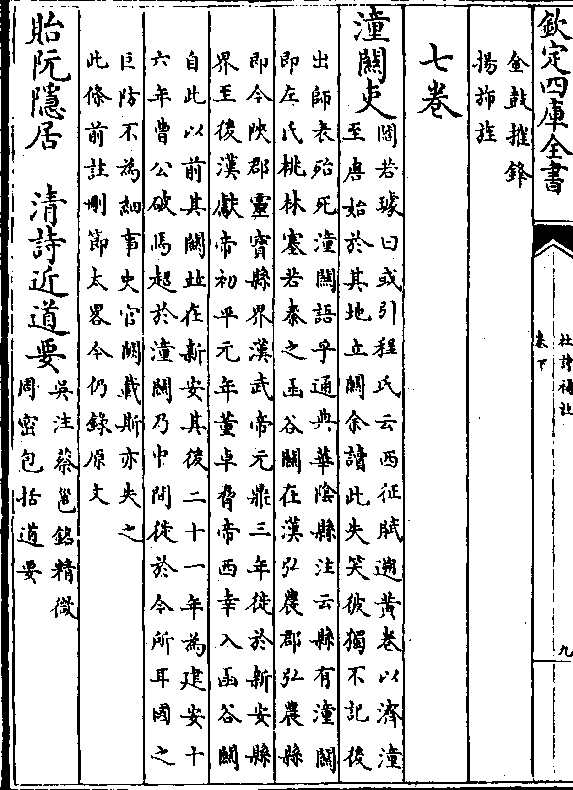 欽定四庫全書
杜詩補註
卷下
九
金鼓摧鋒
揚斾旌
七卷
潼關吏
閻若璩曰或引程氏云西征賦遡黄巷以濟潼
至唐始於其地立關余讀此失笑彼獨不記後
出師表殆死潼關語乎通典華陰縣注云縣有潼關
即左氏桃林塞若秦之函谷關在漢弘農郡弘農縣
即今陜郡靈寶縣界漢武帝元鼎三年徙於新安縣
界至後漢獻帝初平元年董卓脅帝西幸入函谷關
自此以前其關並在新安其後二十一年為建安十
六年曹公破馬超於潼關乃中間徙於今所耳國之
巨防不為細事史官闕載斯亦失之
此條前註刪節太畧今仍錄原文
貽阮隱居　清詩近道要
吳注蔡邕銘精微
周密包括道要